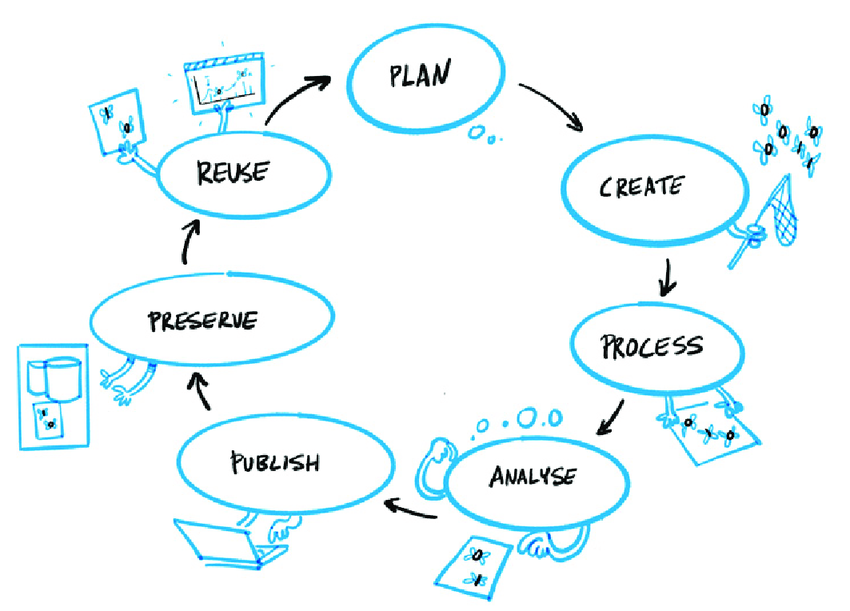 PLAN
CREATE
PROCESS
ANALYSE
PUBLISH
PRESERVE
REUSE